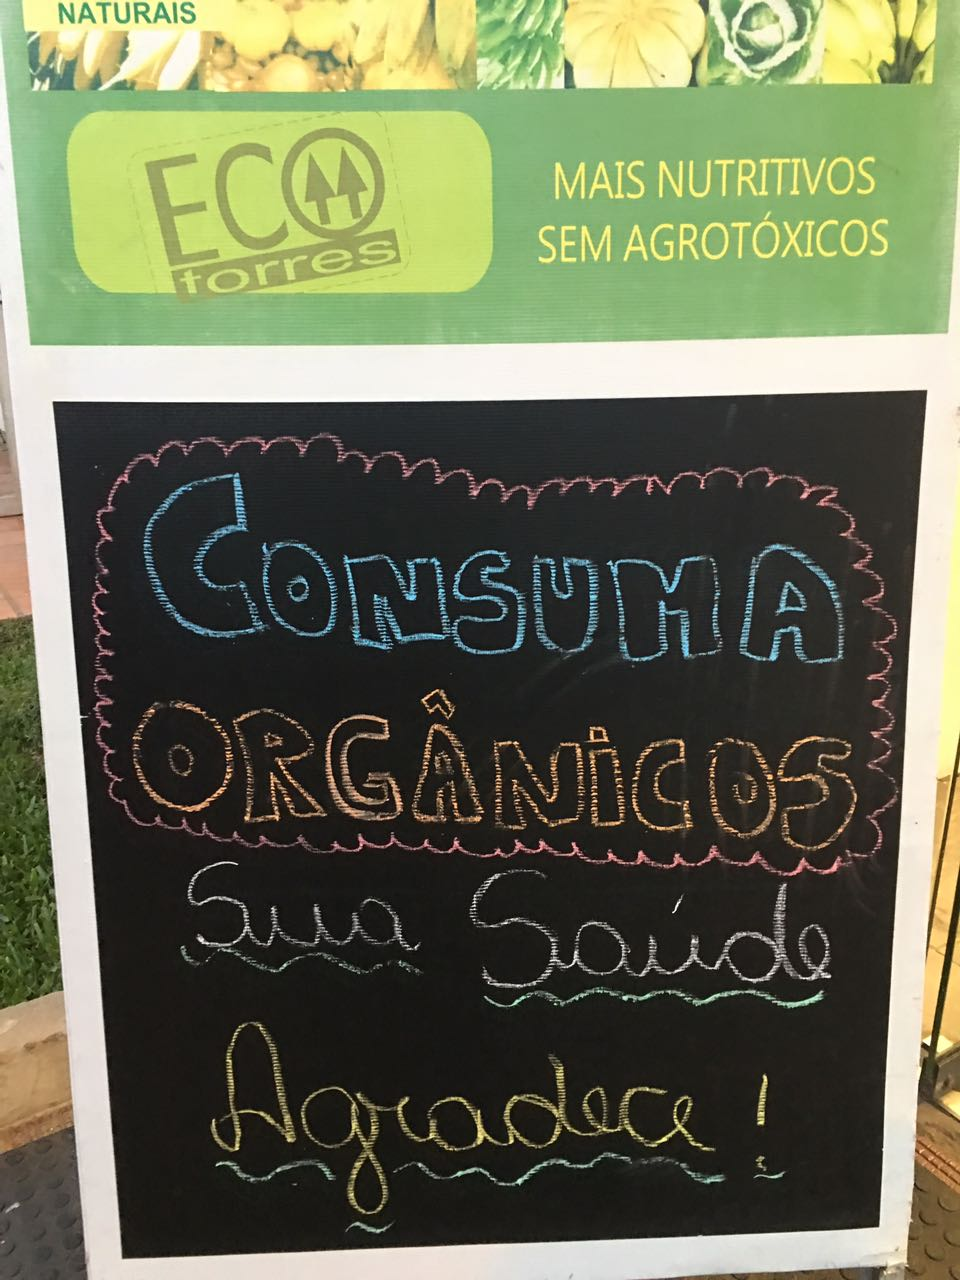 NATURAIS
ECO
torres
MAIS NUTRITIVOS
SEM AGROTÓXICOS
CONSUMA
ORGÂNICOS
Sua Saúde
Agradece!